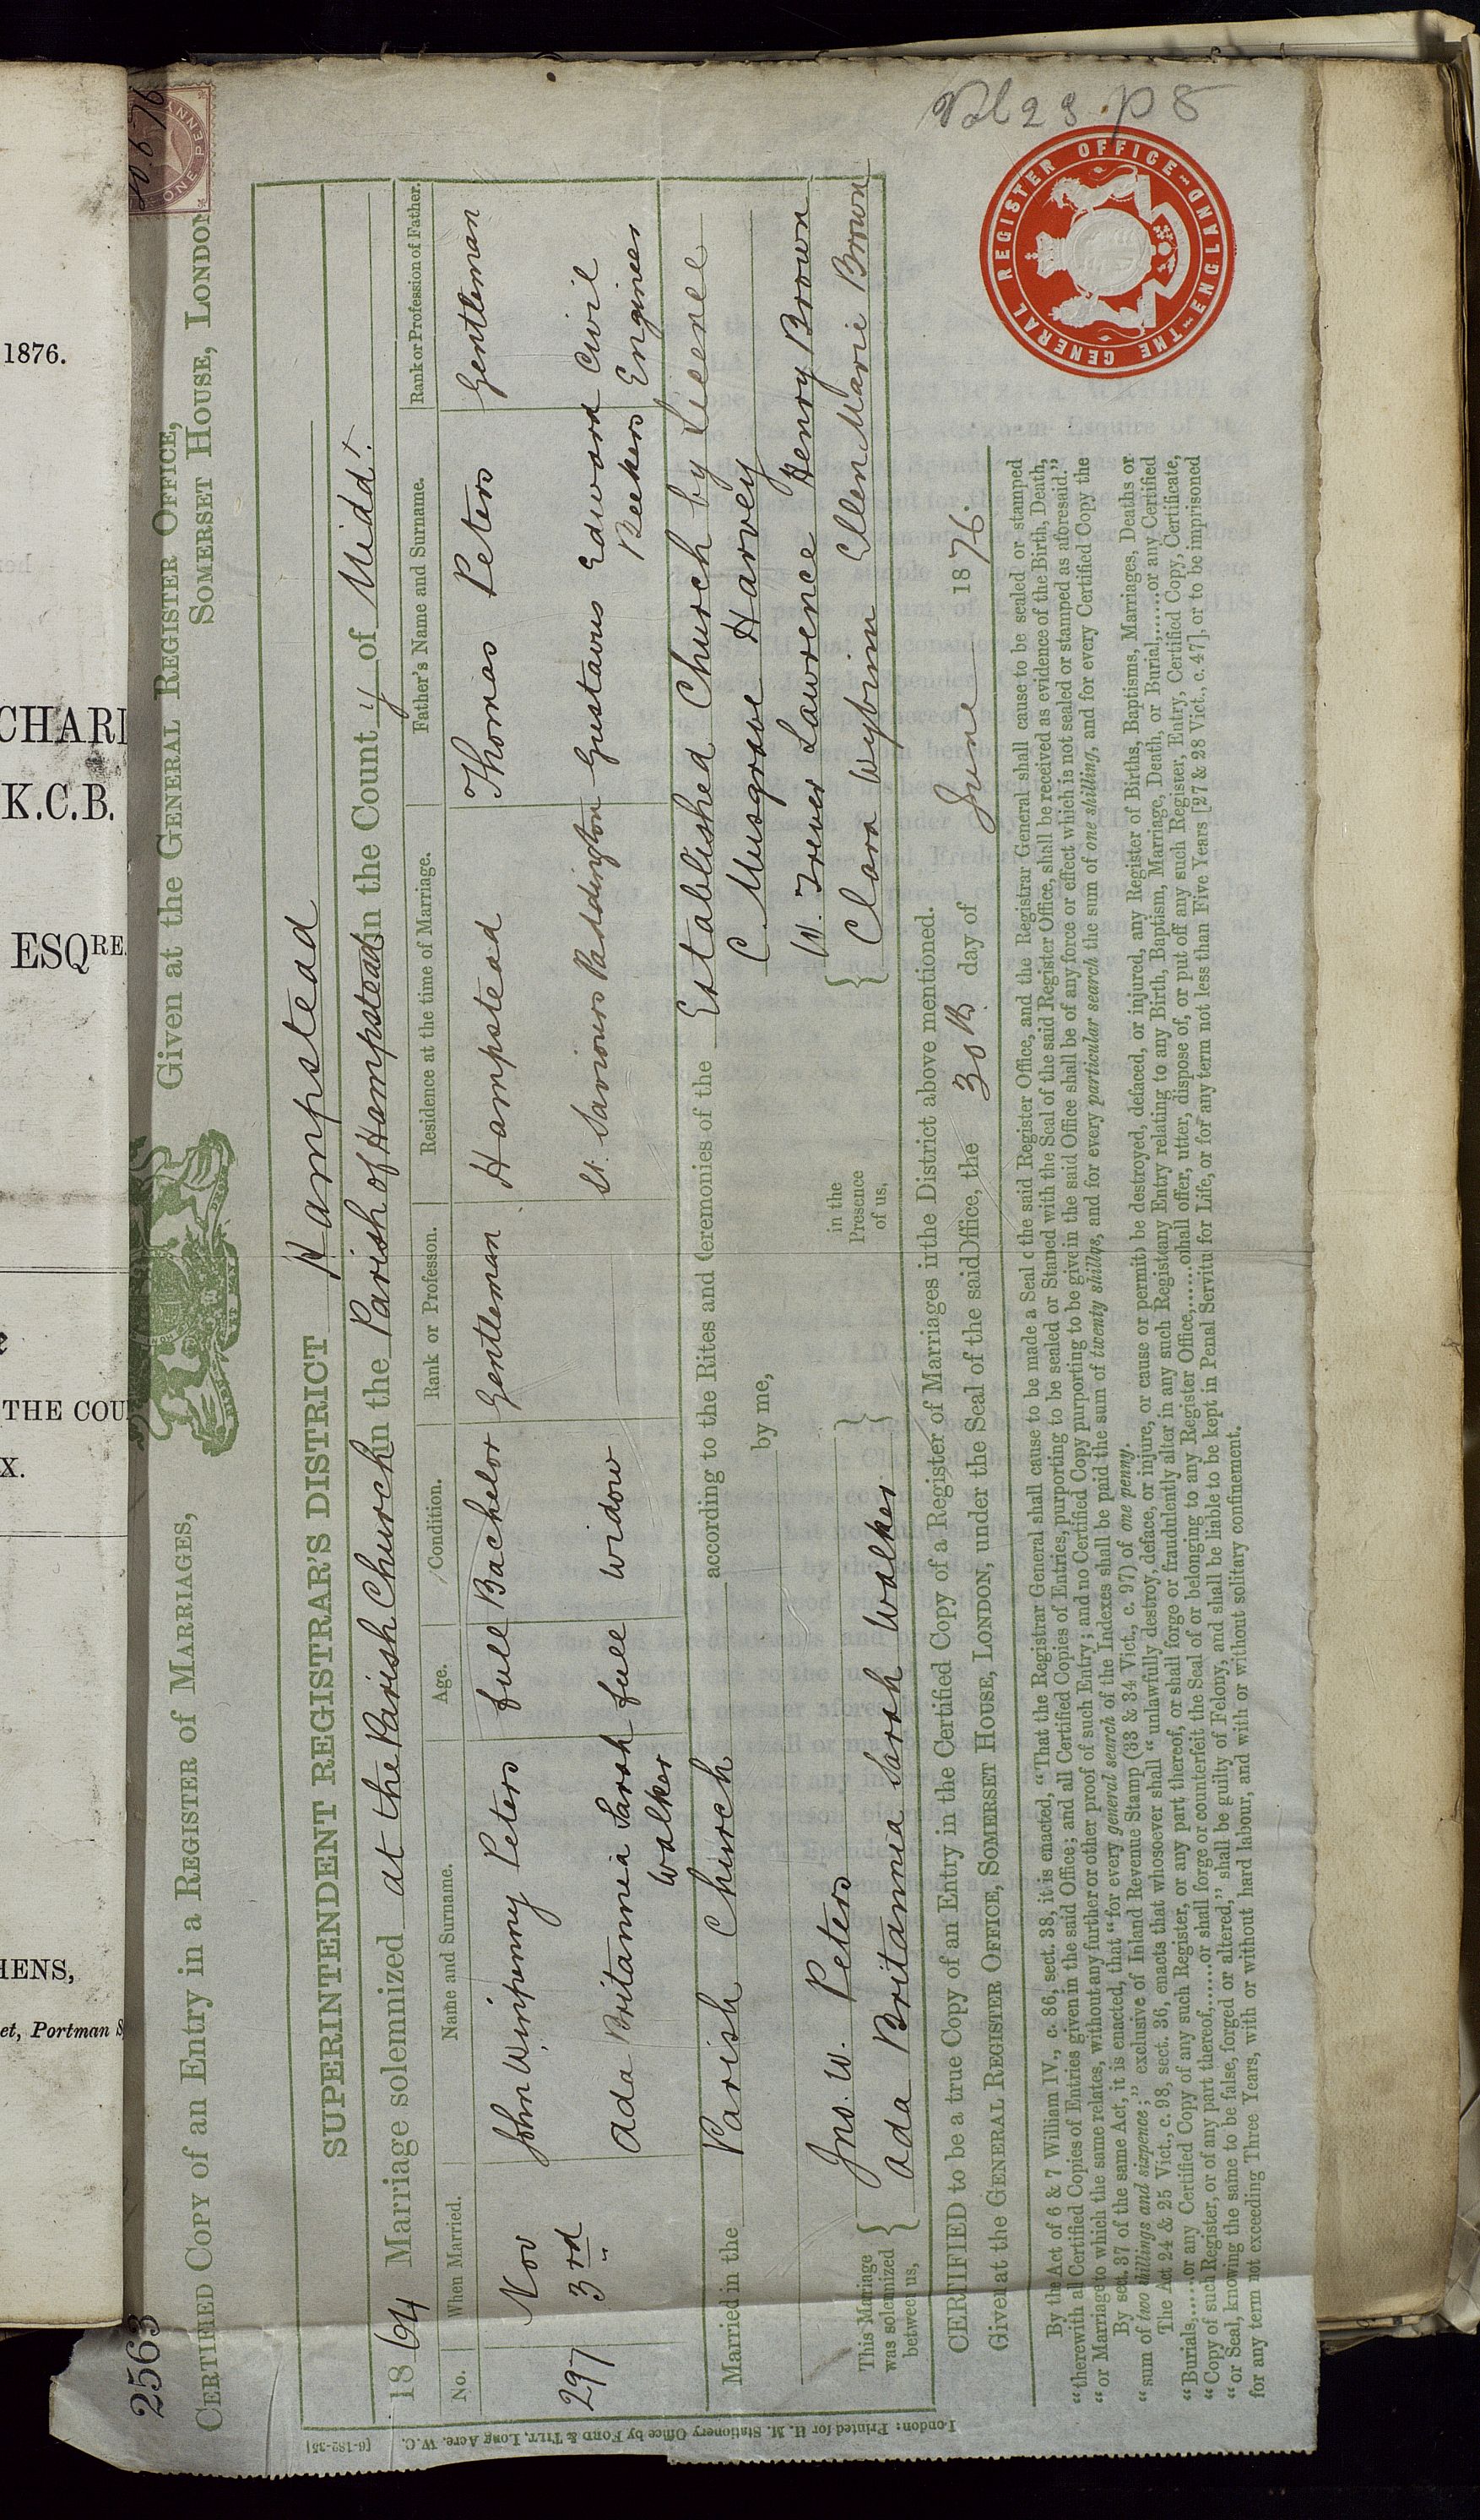 1876.
CHARL
K.C.B.
ESQRE.
THE COU
X.
HENS,
et, Portman S
2563
30.6.76
ONE PENNY
CERTIFIED COPY of an Entry in a REGISTER of MARRIAGES,
Given at the GENERAL REGISTER OFFICE,
SOMERSET HOUSE, LONDON
SUPERINTENDENT REGISTRAR'S DISTRICT Hampstead
1864 Marriage solemnized at the Parish Church in the Parish of Hampstead in the County of Middx.
No. When Married. Name and Surname. Age. Condition. Rank or Professon. Residence at the time of Marriage. Father's Name and Surname. Rank or Profession of Father.
297 Nov 3rd John Winpenny Peters full Bachelor Gentleman Hampstead Thomas Peters Gentleman
Ada Britannia Sarah Walker full Widow St. Saviours Paddington Gustavus Edward Beekers Civil Engineer
Married in the Parish Church according to the Rites and Ceremonies of the Established Church by Licence
by me, C. Musgrave Harvey
This Marriage was solemnized between us, Jno. W. Peters
Ada Britannia Sarah Walker
in the Presence of us, W. Trever Lawrence Henry Brown
Clara Wybinn Ellen Marie Brown
CERTIFIED to be a true Copy of an Entry in the Certified Copy of a Register of Marriages in the District above mentioned.
Given at the GENERAL REGISTER OFFICE, SOMERSET HOUSE, LONDON, under the Seal of the said Office, the 30th day of June 1876.
By the Act of 6 & 7 William IV., c. 86, sect. 38, it is enacted, "That the Registrar General shall cause to be made a Seal of the said Register Office, and the Registrar General shall cause to be sealed or stamped
"therewith all Certified Copies of Entries given in the said Office; and all Certified Copies of Entries, purporting to be sealed or Stamped with the Seal of the said Register Office, shall be received as evidence of the Birth, Death,
"or Marriage to which the same relates, without any further or other proof of such Entry; and no Certified Copy purporting to be given in the said Office shall be of any force or effect which is not sealed or stamped as aforesaid."
By sect. 37 of the same Act, it is enacted, that "for every general search of the Indexes shall be paid the sum of twenty shillings, and for every particular search the sum of one shilling, and for every Certified Copy the
"sum of two shillings and sixpence;" exclusive of Inland Revenue Stamp (33 & 34 Vict., c. 97) of one penny.
The Act 24 & 25 Vict., c. 98, sect. 36, enacts that whosoever shall "unlawfully destroy, deface, or injure, or cause or permit to be destroyed, defaced, or injured, any Register of Births, Baptisms, Marriages, Deaths or
"Burials,......or any Certified Copy of any such Register, or any part thereof, or shall forge or fraudulently alter in any such Register any Entry relating to any Birth, Baptism, Marriage, Death, or Burial,......or any Certified
"Copy of such Register, or of any part thereof,......or shall forge or counterfeit the Seal of or belonging to any Register Office,......or shall offer, utter, dispose of, or put off any such Register, Entry, Certified Copy, Certificate,
"or Seal, knowing the same to be false, forged or altered," shall be guilty of Felony, and shall be liable to be kept in Penal Servitude for Life, or for any term not less than Five Years [27 & 28 Vict., c. 47], or to be imprisoned
for any term not exceeding Three Years, with or without hard labour, and with or without solitary confinement.
London: Printed for H. M. Stationery Office by FORD & TILT, Long Acre. W.C. [6-182-35]
THE GENERAL REGISTER OFFICE ENGLAND
Vol 23 . p 8